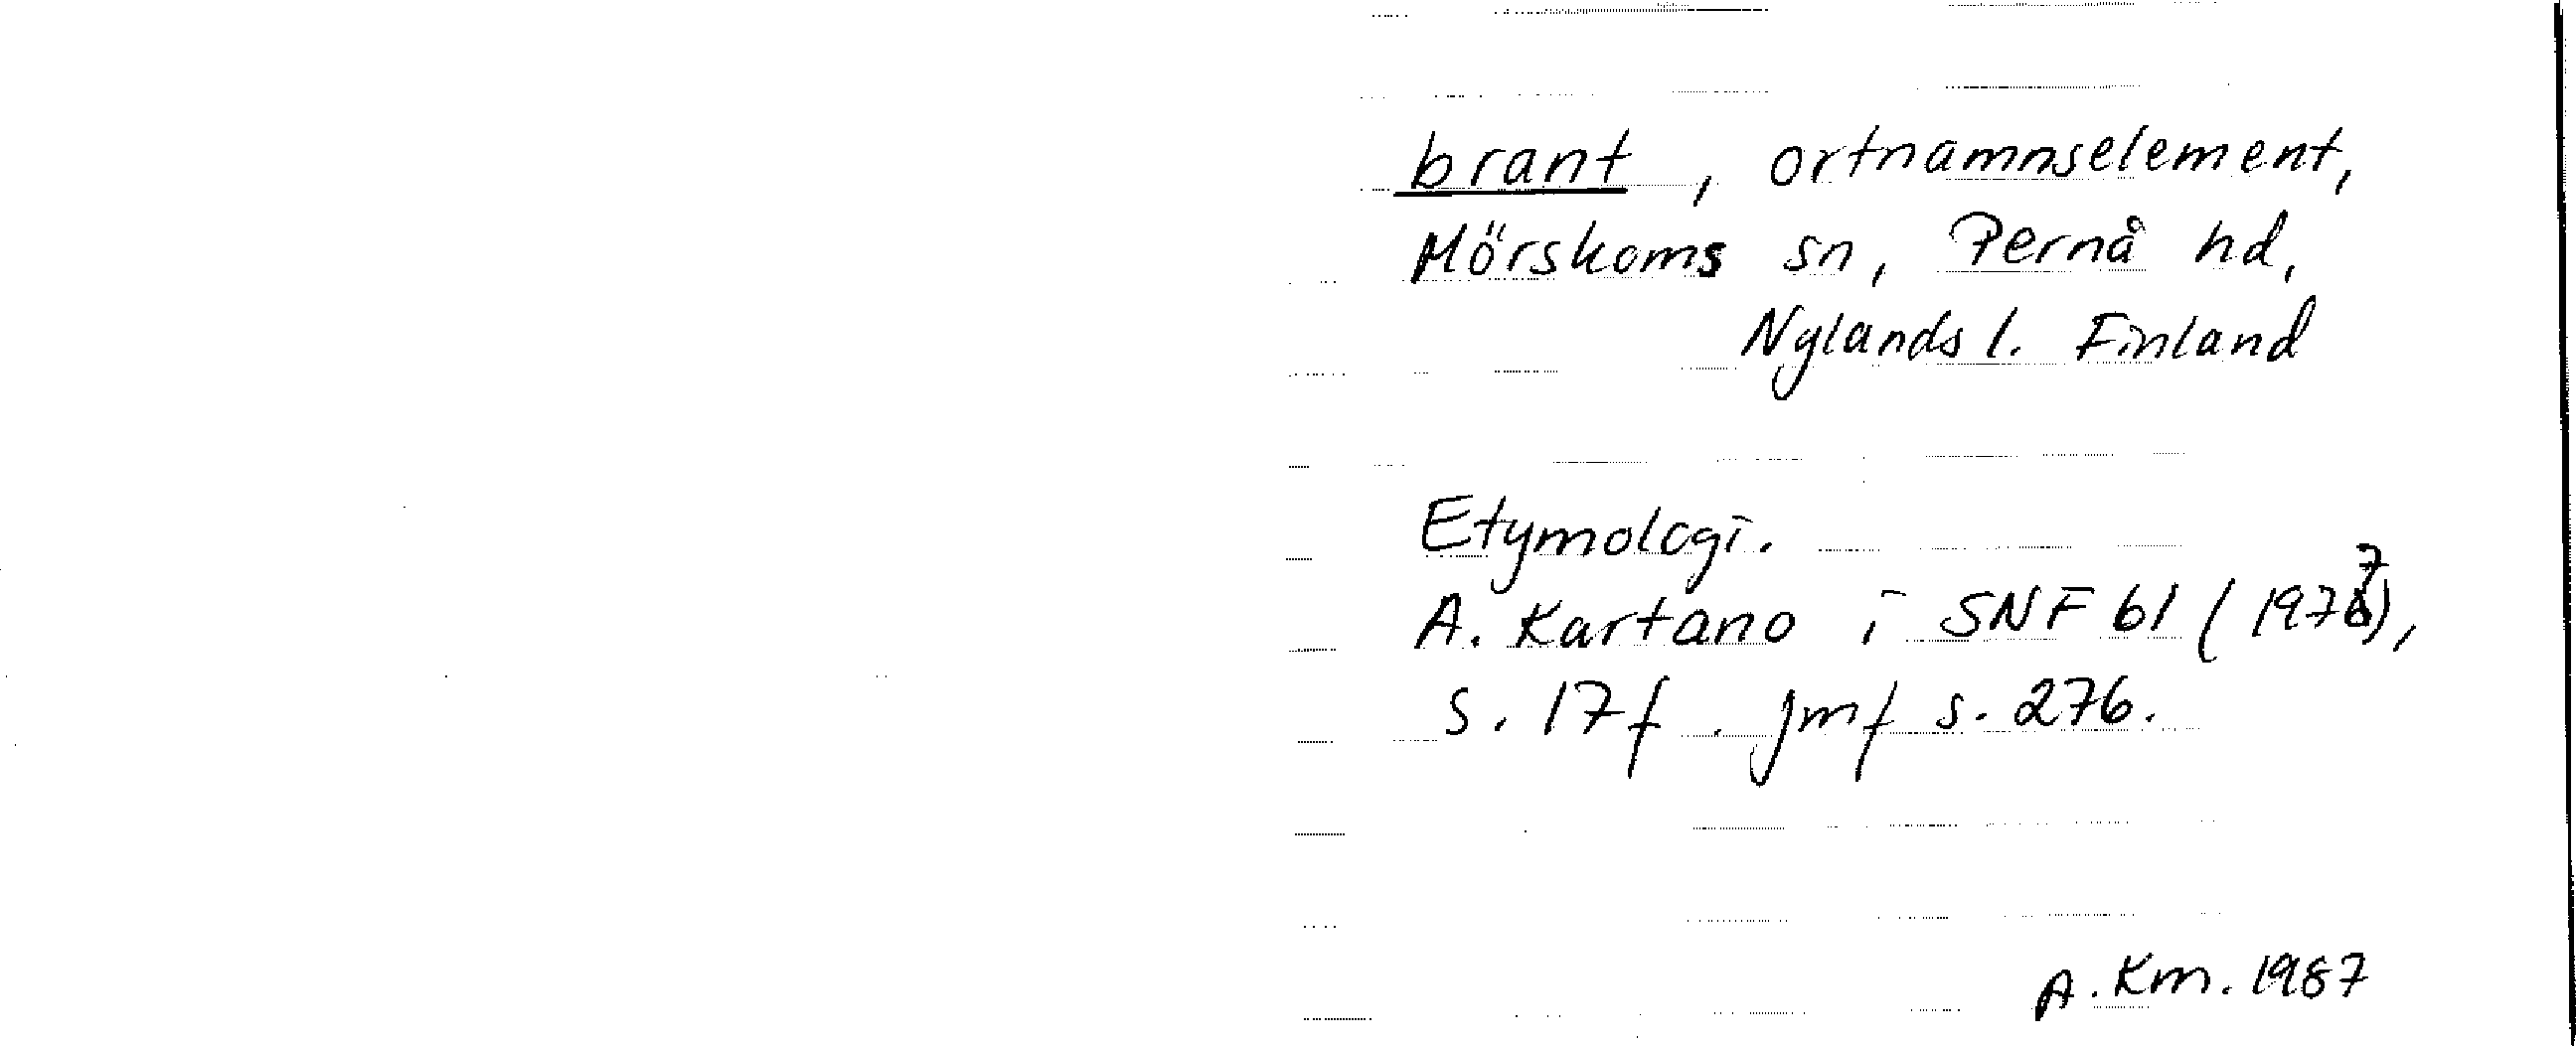 brant, ortnamnselement,
Mörskoms sn, Pernå hd,
Nylands l. Finland
Etymologi.
A. Kartano i SNF 61 (1977),
s. 17f. jmf s. 276.
A. Km. 1987